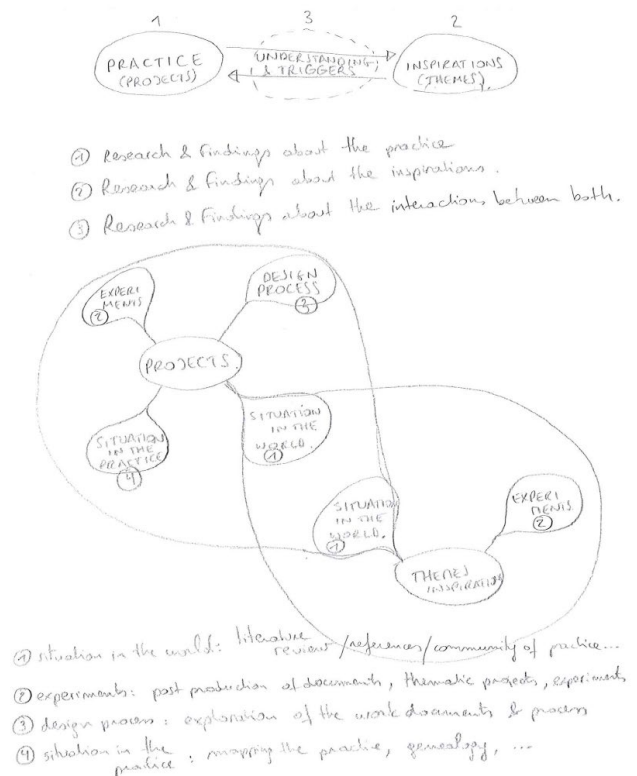 1 3 2
PRACTICE
(PROJECTS)
UNDERSTANDING
& TRIGGERS
INSPIRATIONS
(THEMES)
① Research & Findings about the practice
② Research & Findings about the inspirations.
③ Research & Findings about the interactions between both.
EXPERI
MENTS
②
DESIGN
PROCESS
③
PROJECTS
SITUATION
IN THE
PRACTICE
④
SITUATION
IN THE
WORLD.
①
SITUATION
IN THE
WORLD.
①
EXPERI
MENTS
②
THEMES
INSPIRATION
① situation in the world: literature
review/references/community of practice...
② experiments: post production of documents, thematic projects, experiments
③ design process: exploration of the work documents & process
④ situation in the
practice: mapping the practice, genealogy, ...